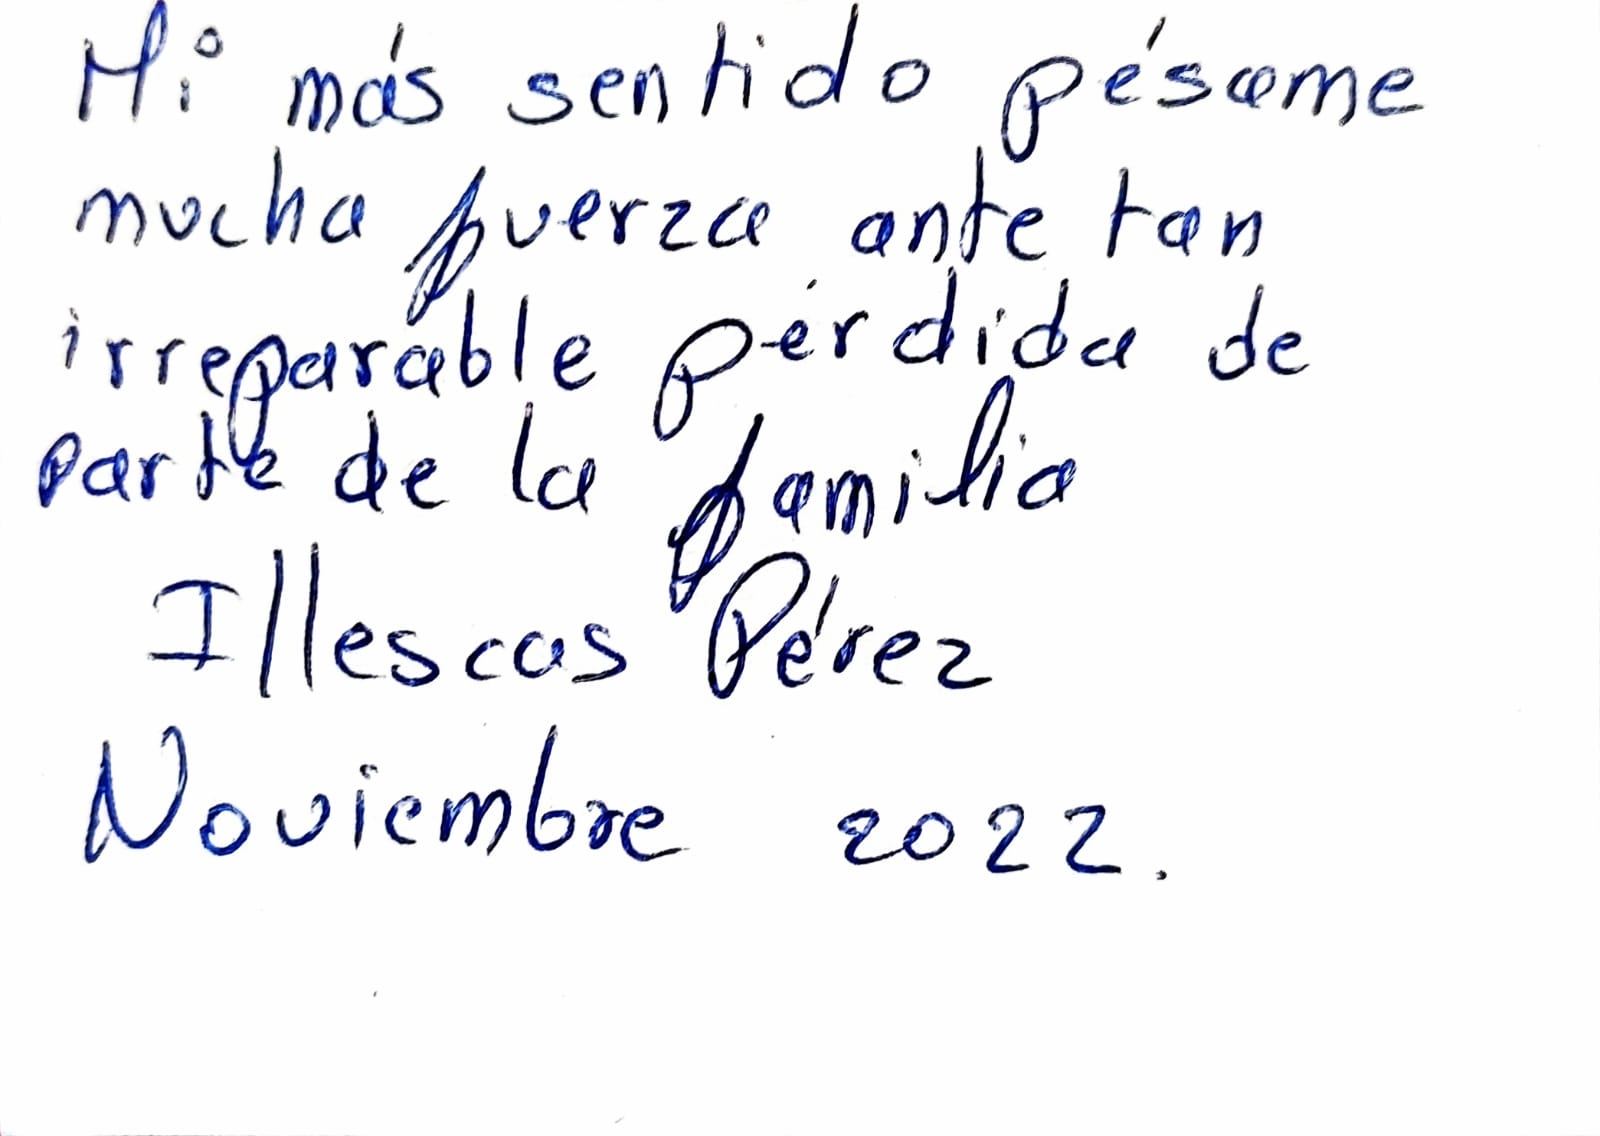 Mi más sentido pésame
mucha fuerza ante tan
irreparable pérdida de
parte de la familia
Illescas Pérez
Noviembre 2022.